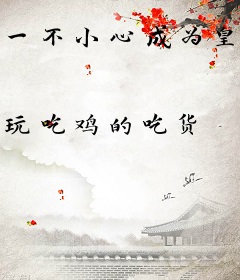 一不小心成为皇
玩吃鸡的吃货